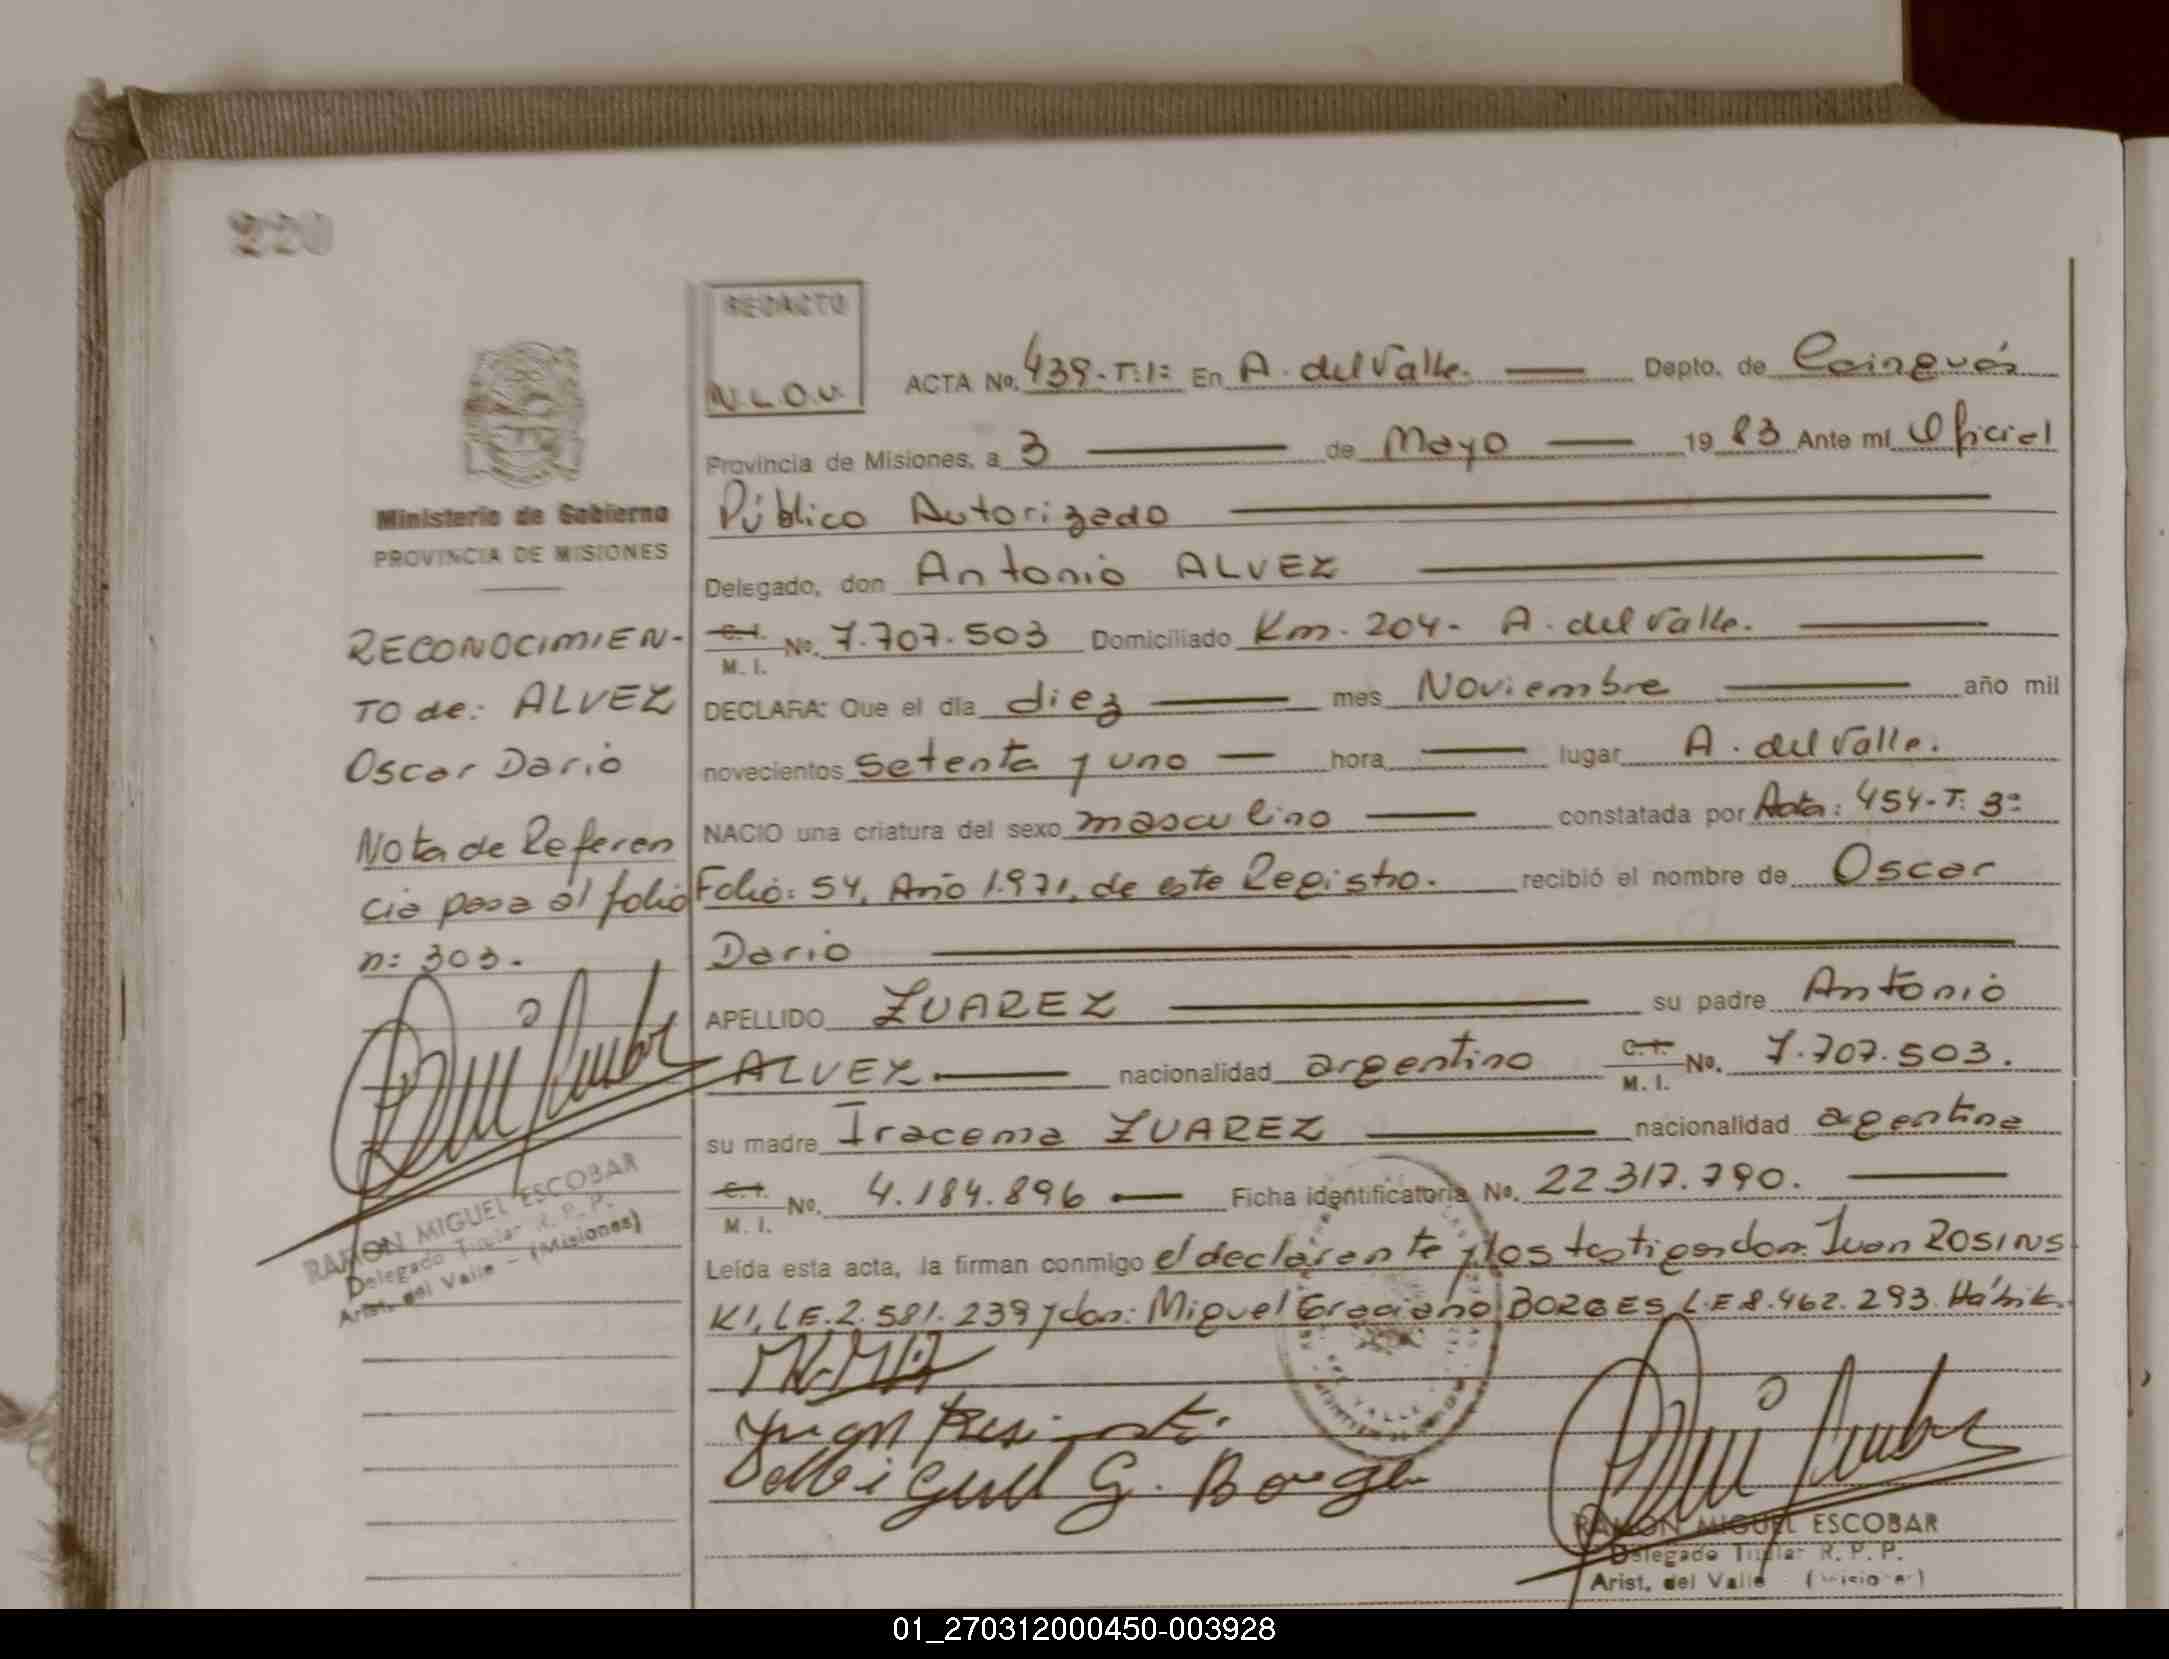 220
REDACTO
N.L.O.V.
ACTA No. 439-T:1: En A. del Valle. Depto. de Cainguás
Provincia de Misiones, a 3 de Mayo 1983 Ante mí Oficial
Público Autorizado
Delegado, don Antonio ALVEZ
C.I. M. I. No. 7.707.503 Domiciliado Km. 204- A. del Valle.
DECLARA: Que el día diez mes Noviembre año mil
novecientos setenta y uno hora lugar A. del Valle.
NACIO una criatura del sexo masculino constatada por Acta: 454-T: 3º
Folio: 54, Año 1.971, de este Registro. recibió el nombre de Oscar
Dario
APELLIDO ZUAREZ su padre Antonio
ALVEZ nacionalidad argentino C.I. M. I. No. 7.707.503.
su madre Iracema ZUAREZ nacionalidad agentina
C.I. M. I. No. 4.184.896 Ficha identificatoria No. 22317.790.
Leída esta acta, la firman conmigo el declarante y los testigos don: Juan ROSINS
KI, L.E. 2.581.239 y don: Miguel Graciano BORGES, L.E 8.462.293. Hábil.
Miguel G. Borge
RAMON MIGUEL ESCOBAR
Delegado Titular R. P. P.
Arist. del Valle (Misiones)
Ministerio de Gobierno
PROVINCIA DE MISIONES
RECONOCIMIEN-
TO de: ALVEZ
Oscar Dario
Nota de Referen
cia pasa al folio
n: 303.
RAMON MIGUEL ESCOBAR
Delegado Titular R. P. P.
Arist. del Valle - (Misiones)
01_270312000450-003928